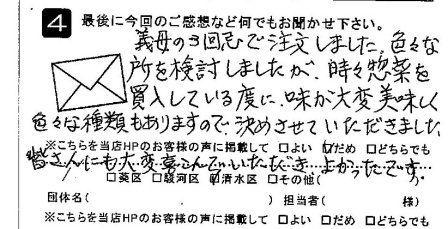 4 最後に今回のご感想など何でもお聞かせ下さい。
義母の3回忌で注文しました。色々な
所を検討しましたが、時々惣菜を
買入している度に、味が大変美味しく
色々な種類もありますので、決めさせていただきました
※こちらを当店HPのお客様の声に掲載して □よい □だめ □どちらでも
皆さんにも大変喜こんでいただき よかったです。
□葵区 □駿河区 □清水区 □その他(
団体名( ) 担当者( 様)
※こちらを当店HPのお客様の声に掲載して □よい □だめ □どちらでも